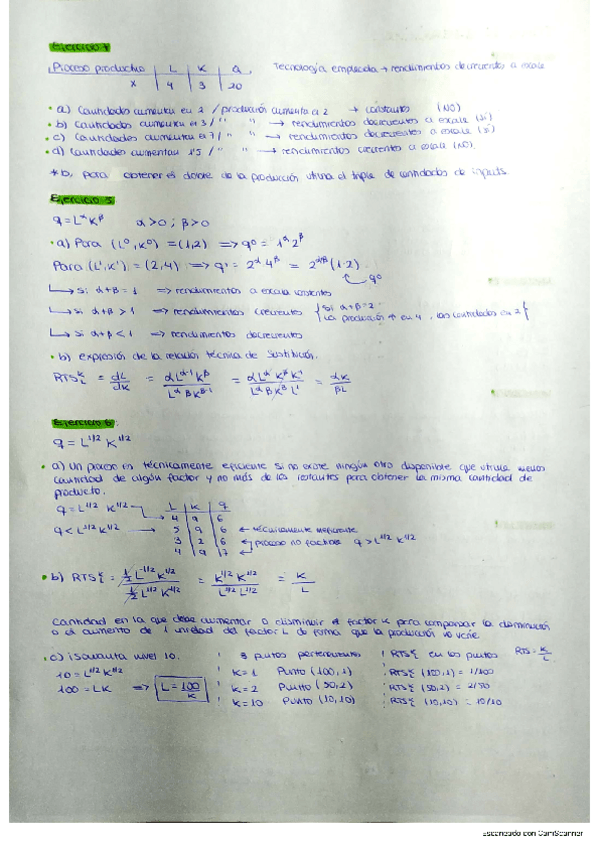 Ejercicio 4
Proceso productivo | L | K | Q . Tecnología empleada → rendimientos decrecientes a escala
x | 4 | 3 | 20
• a) Cantidades aumentan en 2 / producción aumenta a 2 → constantes (NO)
• b) Cantidades aumentan en 3 / " " → rendimientos decrecientes a escala (sí)
• c) Cantidades aumentan en 7 / " " → rendimientos decrecientes a escala (sí)
• d) Cantidades aumentan 1'5 / " " → rendimientos crecientes a escala (NO).
* b, para obtener el doble de la producción utiliza el triple de cantidades de inputs.
Ejercicio 5
q = L^α K^β α>0 ; β>0
• a) Para (L⁰, K⁰) = (1,2) => q⁰ = 1^α 2^β
Para (L', K') = (2,4) => q' = 2^α 4^β = 2^(α+β) (1·2)
q⁰
↳ si α+β = 1 => rendimientos a escala constantes
↳ si α+β > 1 => rendimientos crecientes { si α+β=2 la producción ↑ en 4, las cantidades en 2 }
↳ si α+β < 1 => rendimientos decrecientes
• b) expresión de la relación técnica de sustitución.
RTS = dL/dK = αL^(α-1) K^β / L^α βK^(β-1) = αL^α K^β K' / L^α β K^β L' = αK / βL
Ejercicio 6.
q = L^1/2 K^1/2
• a) Un proceso es técnicamente eficiente si no existe ningún otro disponible que utilice menos
cantidad de algún factor y no más de los restantes para obtener la misma cantidad de
producto.
q = L^1/2 K^1/2 → L | K | q
4 | 9 | 6
q < L^1/2 K^1/2 → 5 | 9 | 6 ← técnicamente ineficiente
3 | 2 | 6 ← proceso no factible q > L^1/2 K^1/2
4 | 9 | 7 ←
• b) RTS = 1/2 L^-1/2 K^1/2 / 1/2 L^1/2 K^-1/2 = K^1/2 K^1/2 / L^1/2 L^1/2 = K / L
Cantidad en la que debe aumentar o disminuir el factor K para compensar la disminución
o el aumento de 1 unidad del factor L de forma que la producción no varíe.
• c) isocuanta nivel 10. 3 puntos pertenecientes RTS en los puntos RTS = K/L
10 = L^1/2 K^1/2 K=1 Punto (100,1) RTS (100,1) = 1/100
100 = LK => L = 100/K K=2 Punto (50,2) RTS (50,2) = 2/50
K=10 Punto (10,10) RTS (10,10) = 10/10
Escaneado con CamScanner